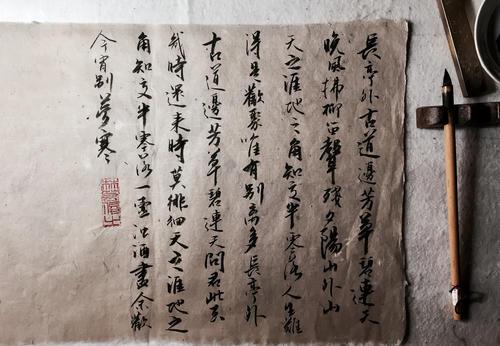 長亭外古道邊芳草碧連天
晚風拂柳笛聲殘夕陽山外山
天之涯地之角知交半零落人生難
得是歡聚唯有別離多長亭外
古道邊芳草碧連天問君此去
幾時還來時莫徘徊天之涯地之
角知交半零落一壺濁酒盡余歡
今宵別夢寒